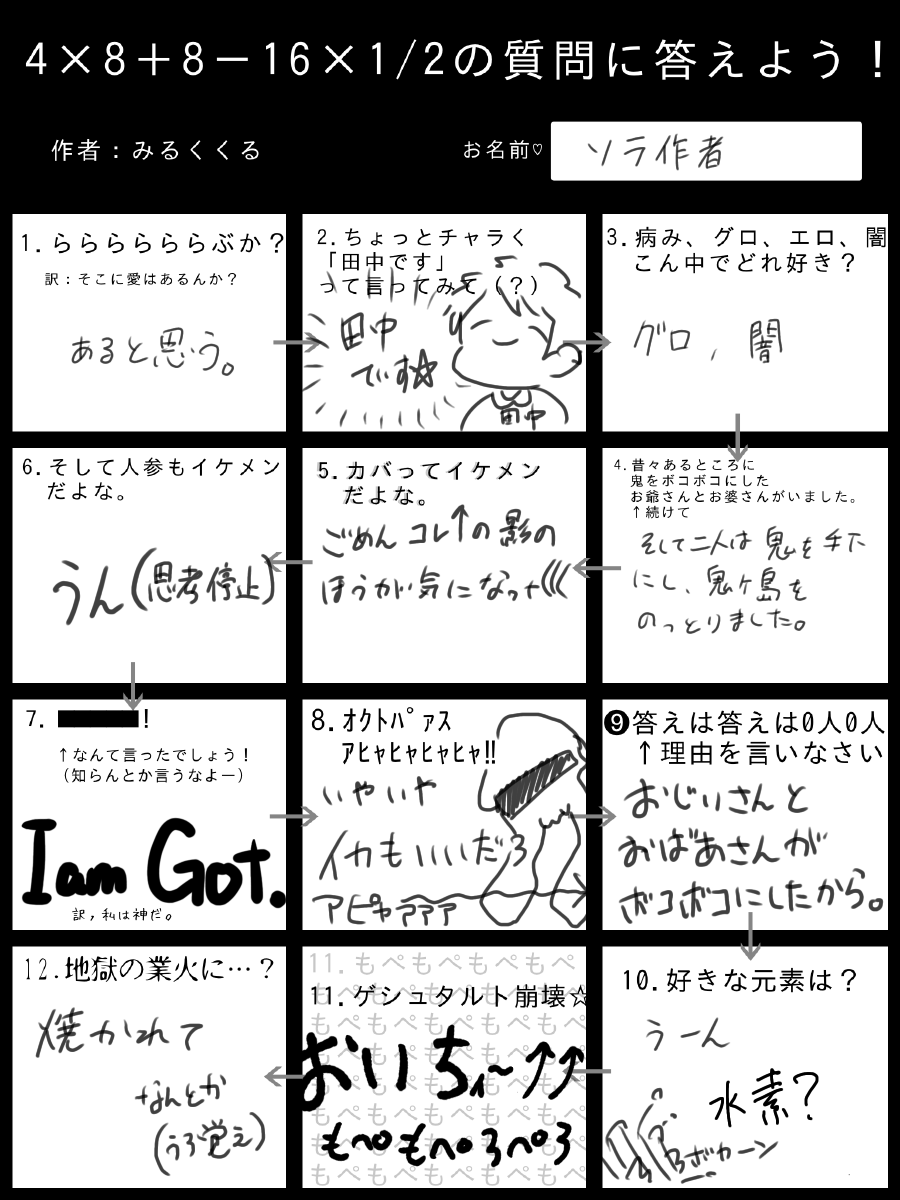 4×8+8-16×1/2の質問に答えよう！
作者：みるくくる
お名前♡
ソラ作者
1.らららららららぶか？
訳：そこに愛はあるんか？
あると思う。
2.ちょっとチャラく
「田中です」
って言ってみて（？）
田中
です☆
田中
3.病み、グロ、エロ、闇
こん中でどれ好き？
グロ，闇
4.昔々あるところに
鬼をボコボコにした
お爺さんとお婆さんがいました。
↑続けて
そして二人は鬼を手た
にし、鬼ヶ島を
のっとりました。
5.カバってイケメン
だよな。
ごめん コレ↑の影の
ほうが気になった(((
6.そして人参もイケメン
だよな。
うん(思考停止)
7.
！
↑なんて言ったでしょう！
（知らんとか言うなよー）
I am Got.
訳，私は神だ。
8.ｵｸﾄﾊﾟｧｽ
ｱﾋｬﾋｬﾋｬﾋｬ!!
いやいや
イカもいいだろ
アピャァァァ
❾答えは答えは0人0人
↑理由を言いなさい
おじいさんと
おばあさんが
ボコボコにしたから。
10.好きな元素は？
うーん
水素？
ボカーン
11.もぺもぺもぺもぺ
11.ゲシュタルト崩壊☆
おいちぃ～↑↑
もぺもぺろぺろ
12.地獄の業火に…？
焼かれて
なんとか
(うろ覚え)